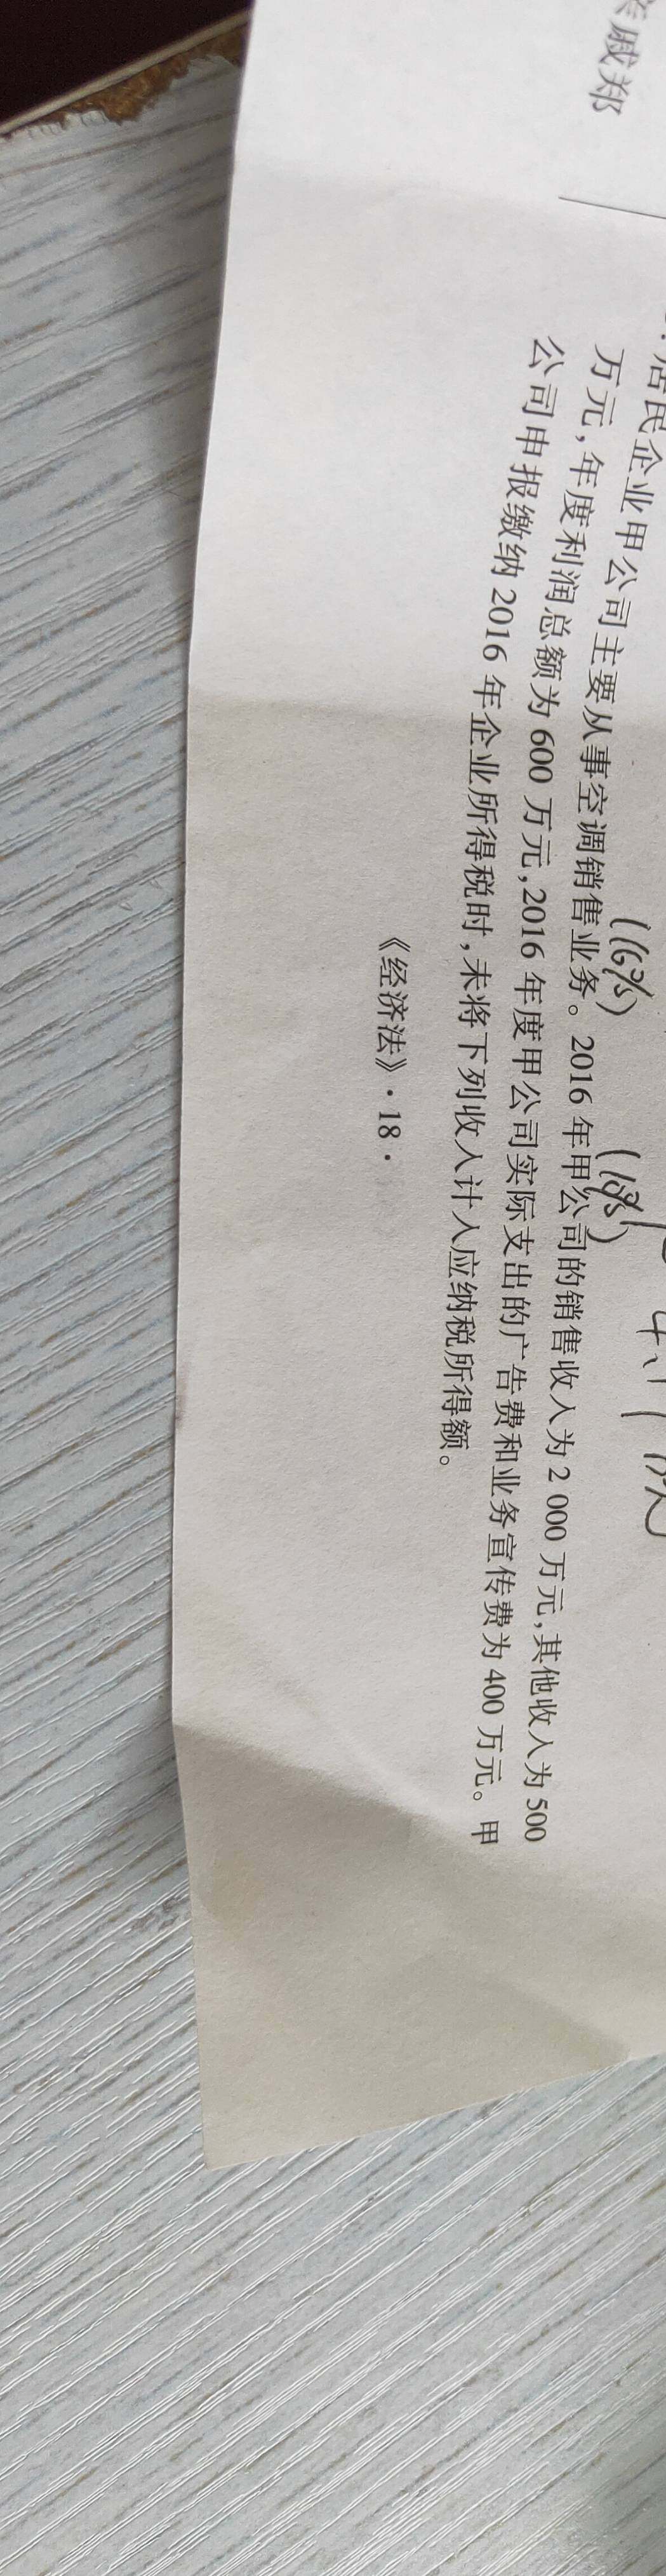 戚郑
(16%)
(10%)
居民企业甲公司主要从事空调销售业务。2016年甲公司的销售收入为2 000万元,其他收入为500
万元,年度利润总额为600万元,2016年度甲公司实际支出的广告费和业务宣传费为400万元。甲
公司申报缴纳2016年企业所得税时,未将下列收入计入应纳税所得额。
《经济法》·18·